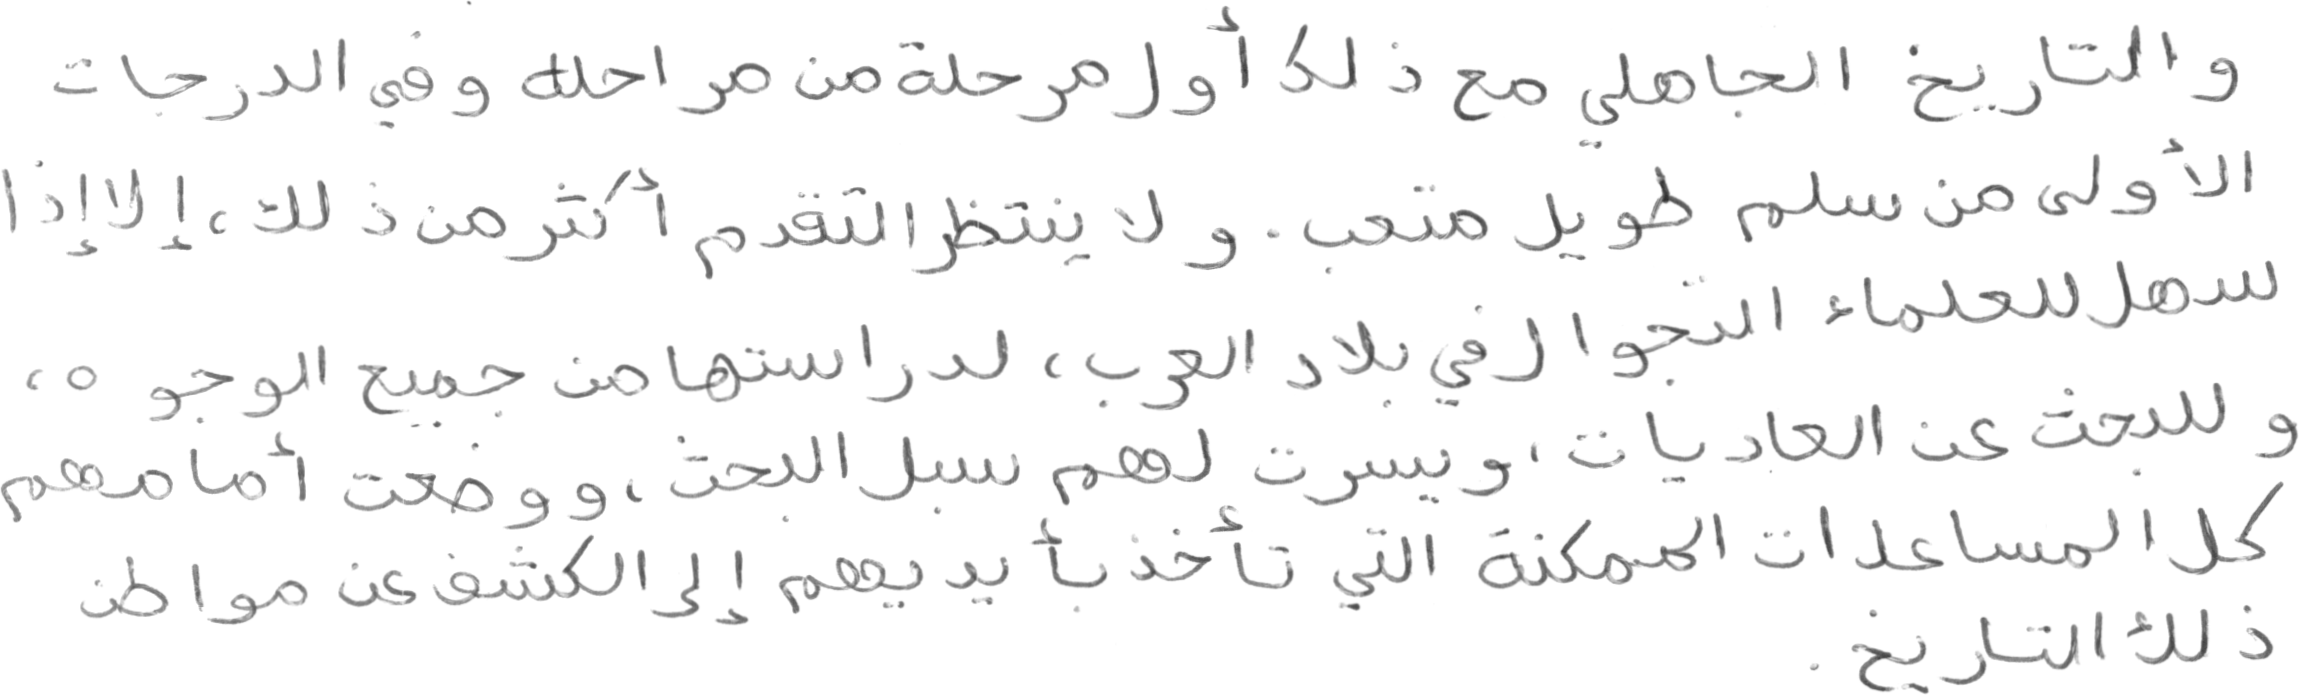 والتاريخ الجاهلي مع ذلك أول مرحلة من مراحله وفي الدرجات
الأولى من سلم طويل متعب. ولا ينتظر التقدم أكثر من ذلك، إلا إذا
سهل للعلماء التجوال في بلاد العرب، لدراستها من جميع الوجوه،
وللبحث عن العاديات، ويسرت لهم سبل البحث، ووضعت أمامهم
كل المساعدات الممكنة التي تأخذ بأيديهم إلى الكشف عن مواطن
ذلك التاريخ.